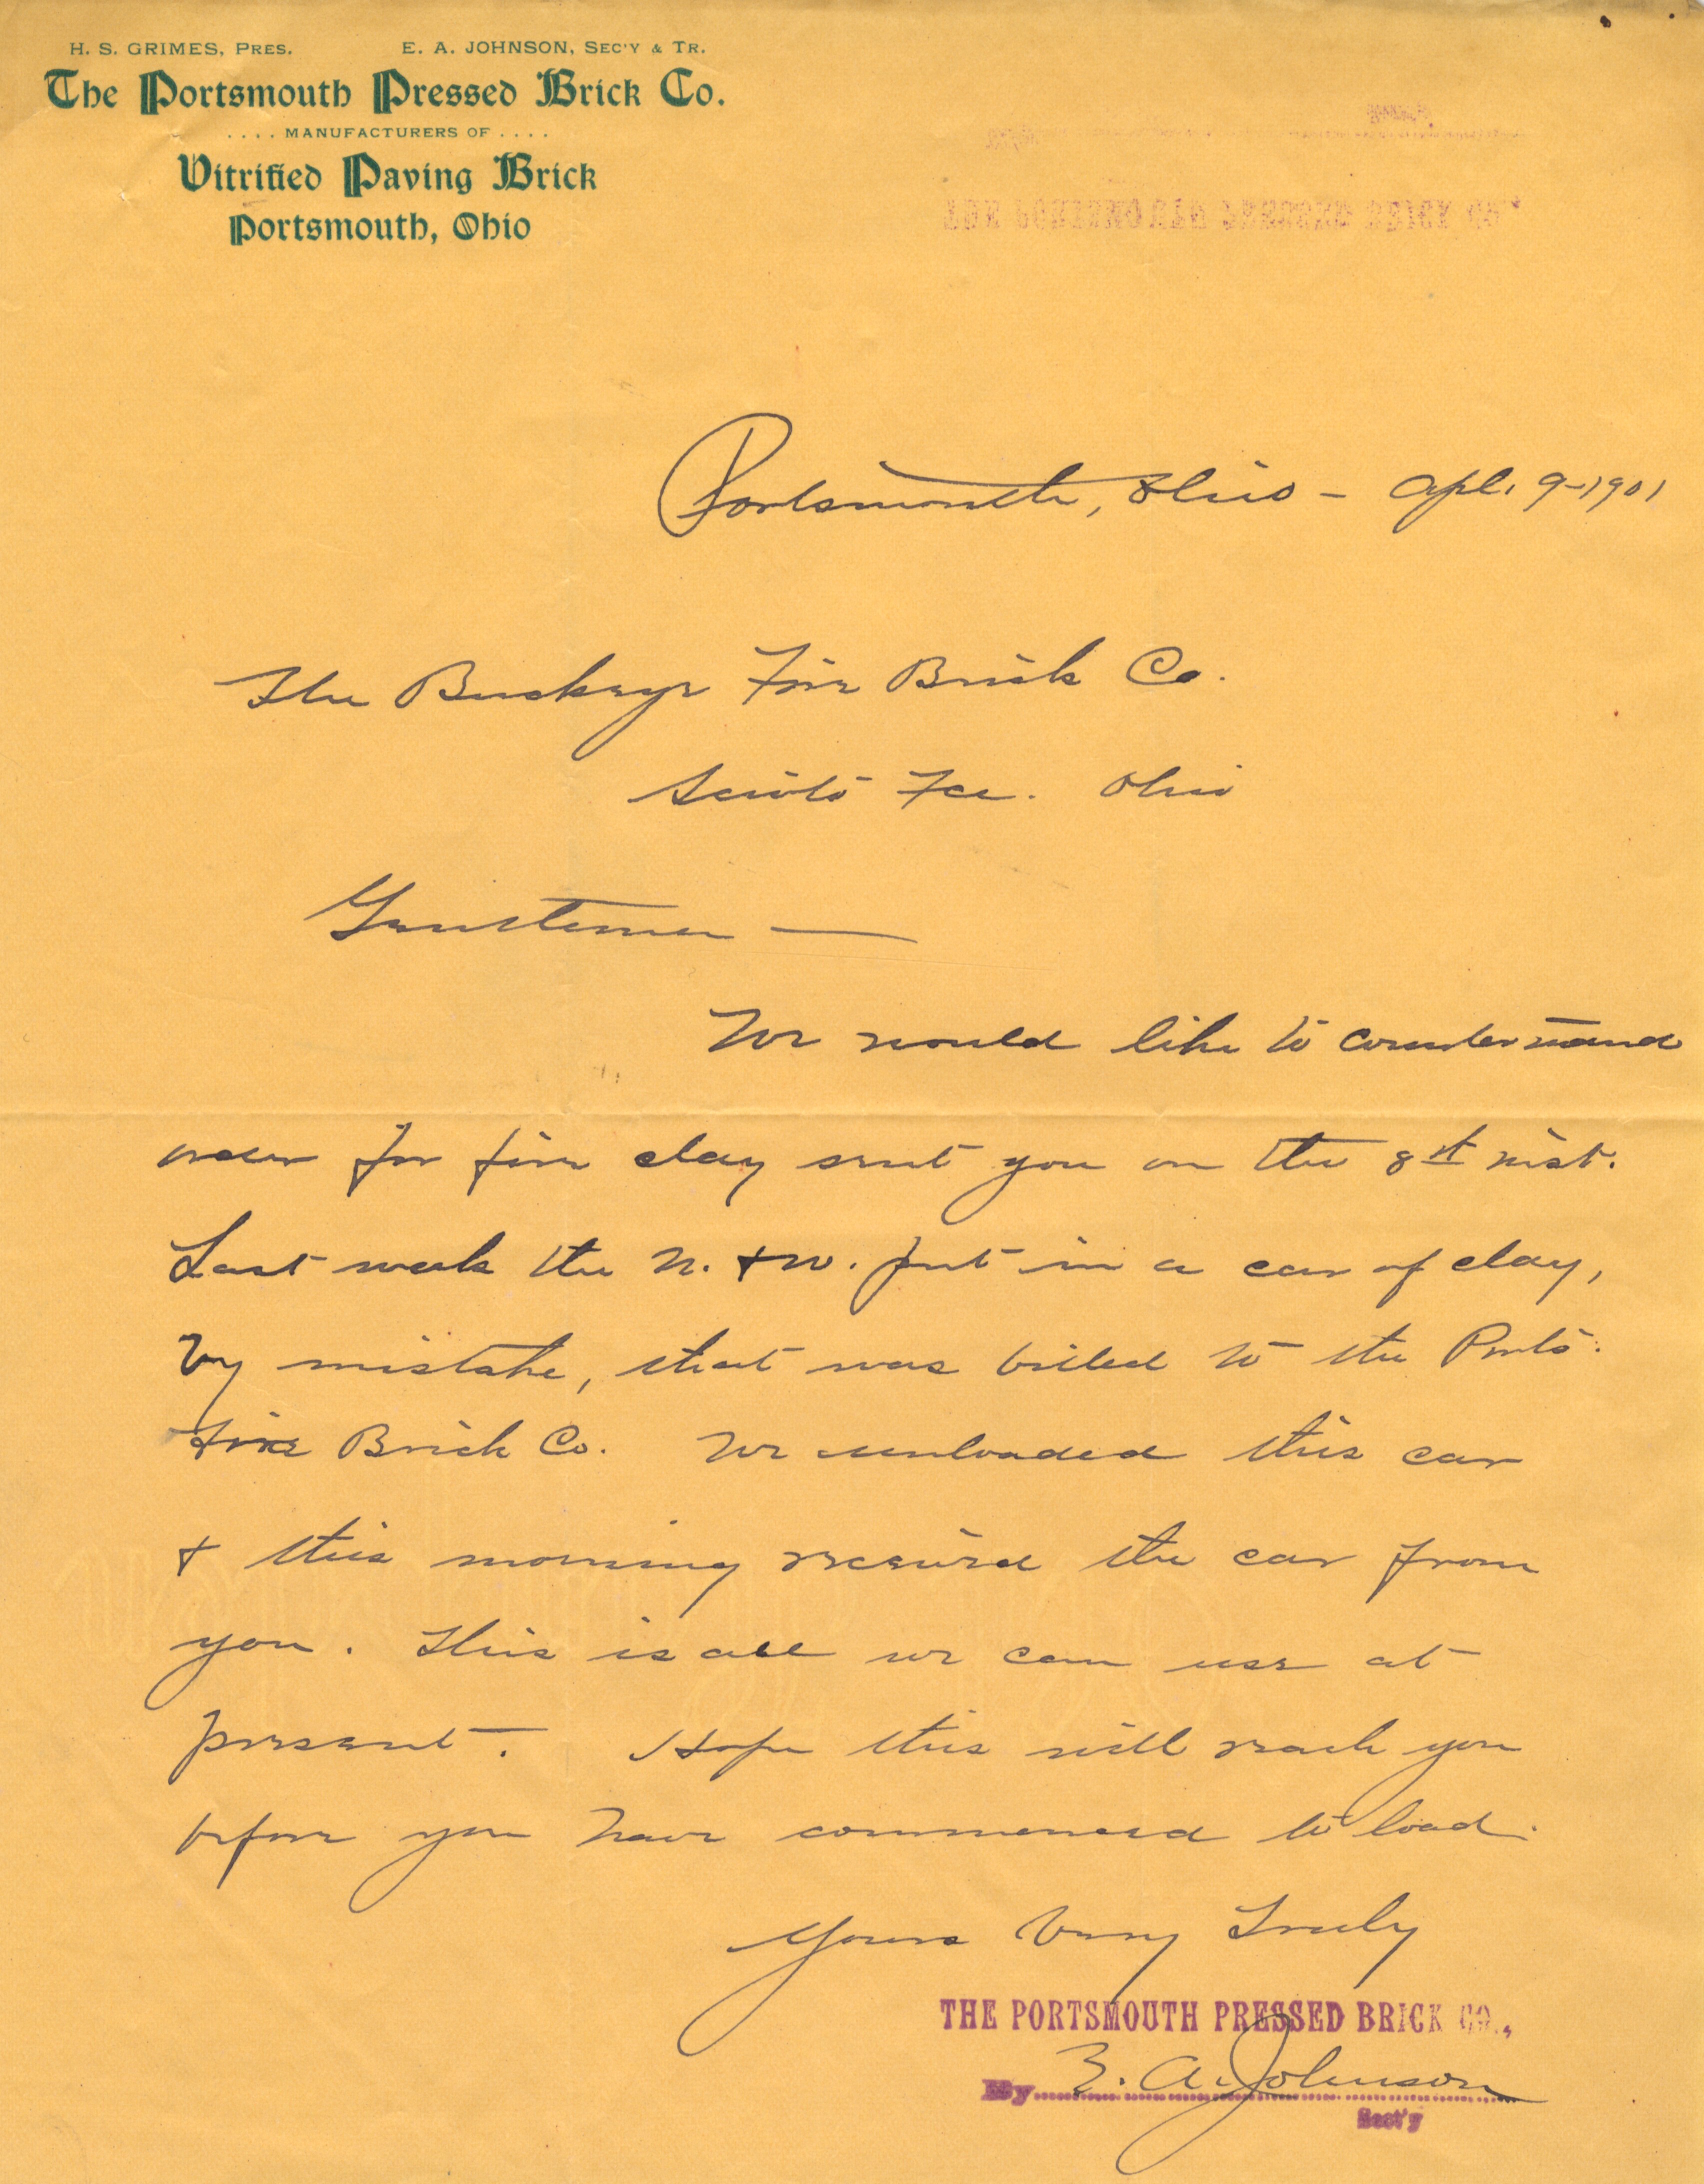 H. S. GRIMES, PRES. E. A. JOHNSON, SEC'Y & TR.
The Portsmouth Pressed Brick Co.
.... MANUFACTURERS OF ....
Vitrified Paving Brick
Portsmouth, Ohio
Portsmouth, Ohio - Apl. 9-1901
The Buckeye Fire Brick Co.
Scioto Fce. Ohio
Gentlemen —
We would like to countermand
order for fire clay sent you on the 8th inst.
Last week the N. & W. put in a car of clay,
by mistake, that was billed to the Ports.
Fire Brick Co. We unloaded this car
& this morning received the car from
you. This is all we can use at
present. Hope this will reach you
before you have commenced to load.
Yours Very Truly
THE PORTSMOUTH PRESSED BRICK CO.,
By E. A. Johnson
Sect'y